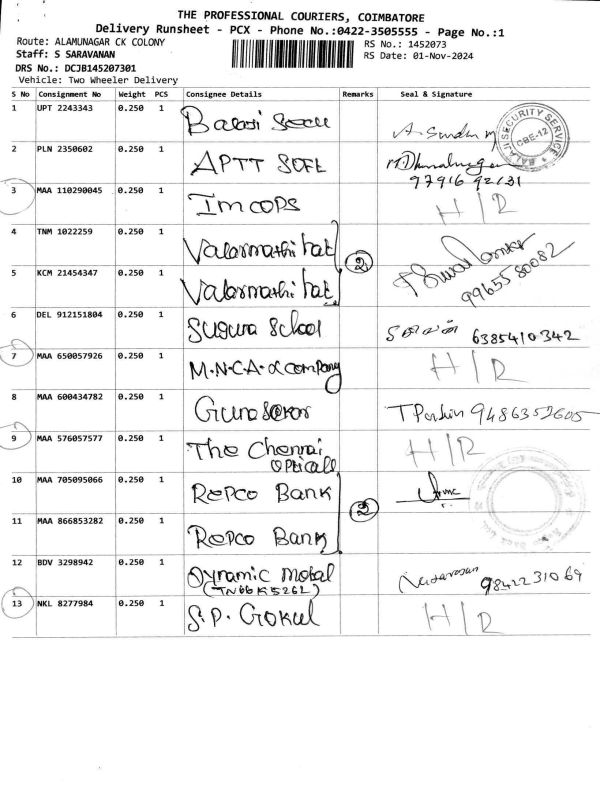 THE PROFESSIONAL COURIERS, COIMBATORE
Delivery Runsheet - PCX - Phone No.:0422-3505555 - Page No.:1
Route: ALAMUNAGAR CK COLONY
RS No.: 1452073
Staff: S SARAVANAN
RS Date: 01-Nov-2024
DRS No.: DCJB145207301
Vehicle: Two Wheeler Delivery
S No Consignment No Weight PCS Consignee Details Remarks Seal & Signature
1 UPT 2243343 0.250 1 Balaji
BALAJI SECURITY SERVICE CBE-12
2 PLN 2350602 0.250 1 APTT SOFT
97916 92131
3 MAA 110290045 0.250 1 Imcops H/R
4 TNM 1022259 0.250 1 Valarmathi
2
5 KCM 21454347 0.250 1 Valarmathi 9965580082
6 DEL 912151804 0.250 1 Suguna School 6385410342
7 MAA 650057926 0.250 1 M.N.C.A. & Company H/R
8 MAA 600434782 0.250 1 9486352605
9 MAA 576057577 0.250 1 The Chennai
Opticals H/R
10 MAA 705095066 0.250 1 Repco Bank
2
11 MAA 866853282 0.250 1 Repco Bank
12 BDV 3298942 0.250 1 Dynamic Metal
(TN66K5262) 9842231069
13 NKL 8277984 0.250 1 S.P. Gokul H/R